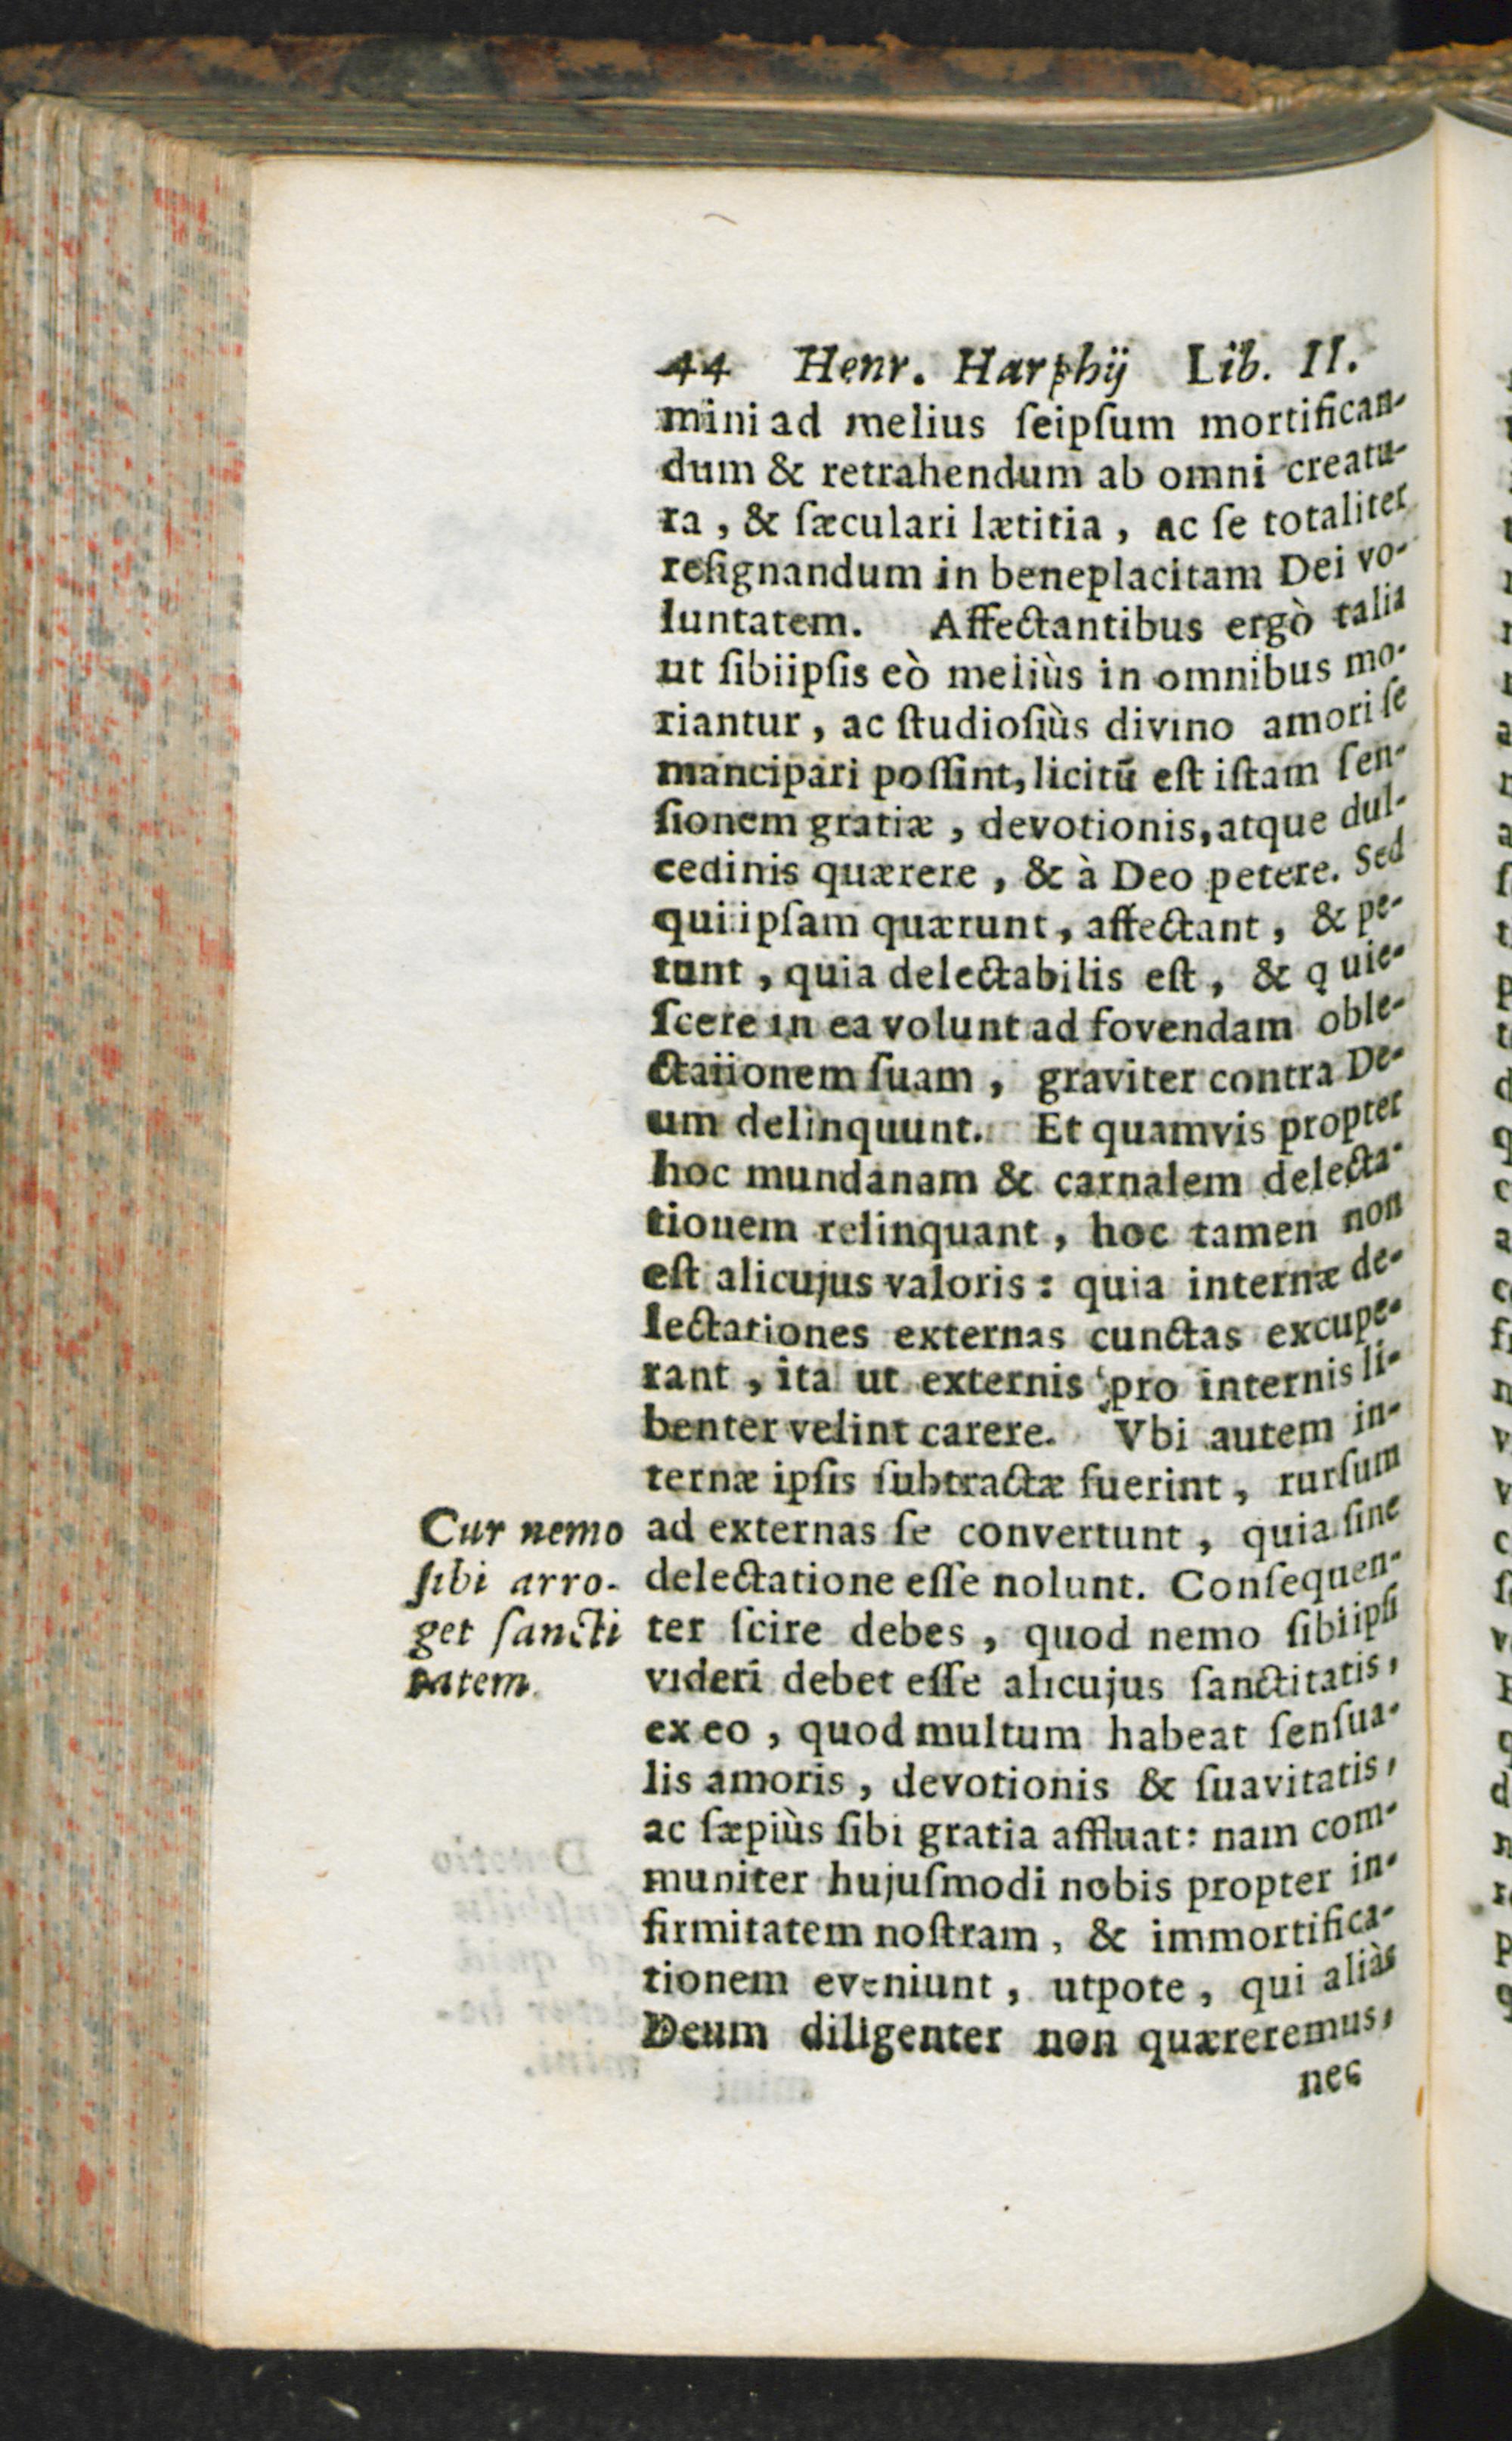 44 Henr. Harphij Lib. II.
mini ad melius ſeipſum mortifican-
dum & retrahendum ab omni creatu-
ra, & ſæculari lætitia, ac ſe totaliter
reſignandum in beneplacitam Dei vo-
luntatem. Affectantibus ergò talia
ut ſibiipſis eò meliùs in omnibus mo-
riantur, ac ſtudioſiùs divino amori ſe
mancipari poſſint, licitũ eſt iſtam ſen-
ſionem gratiæ, devotionis, atque dul-
cedinis quærere, & à Deo petere. Sed
qui ipſam quærunt, affectant, & pe-
tunt, quia delectabilis eſt, & quie-
ſcere in ea volunt ad fovendam oble-
ctationem ſuam, graviter contra De-
um delinquunt. Et quamvis propter
hoc mundanam & carnalem delecta-
tionem relinquant, hoc tamen non
eſt alicujus valoris: quia internæ de-
lectationes externas cunctas excupe-
rant, ita ut externis pro internis li-
benter velint carere. Vbi autem in-
ternæ ipſis ſubtractæ fuerint, rurſum
ad externas ſe convertunt, quia ſine
delectatione eſſe nolunt. Conſequen-
ter ſcire debes, quod nemo ſibiipſi
videri debet eſſe alicujus ſanctitatis,
ex eo, quod multum habeat ſenſua-
lis amoris, devotionis & ſuavitatis,
ac ſæpiùs ſibi gratia affluat: nam com-
muniter hujuſmodi nobis propter in-
firmitatem noſtram, & immortifica-
tionem eveniunt, utpote, qui aliàs
Deum diligenter non quæreremus,
nec
Cur nemo
ſibi arro-
get ſancti
tatem.